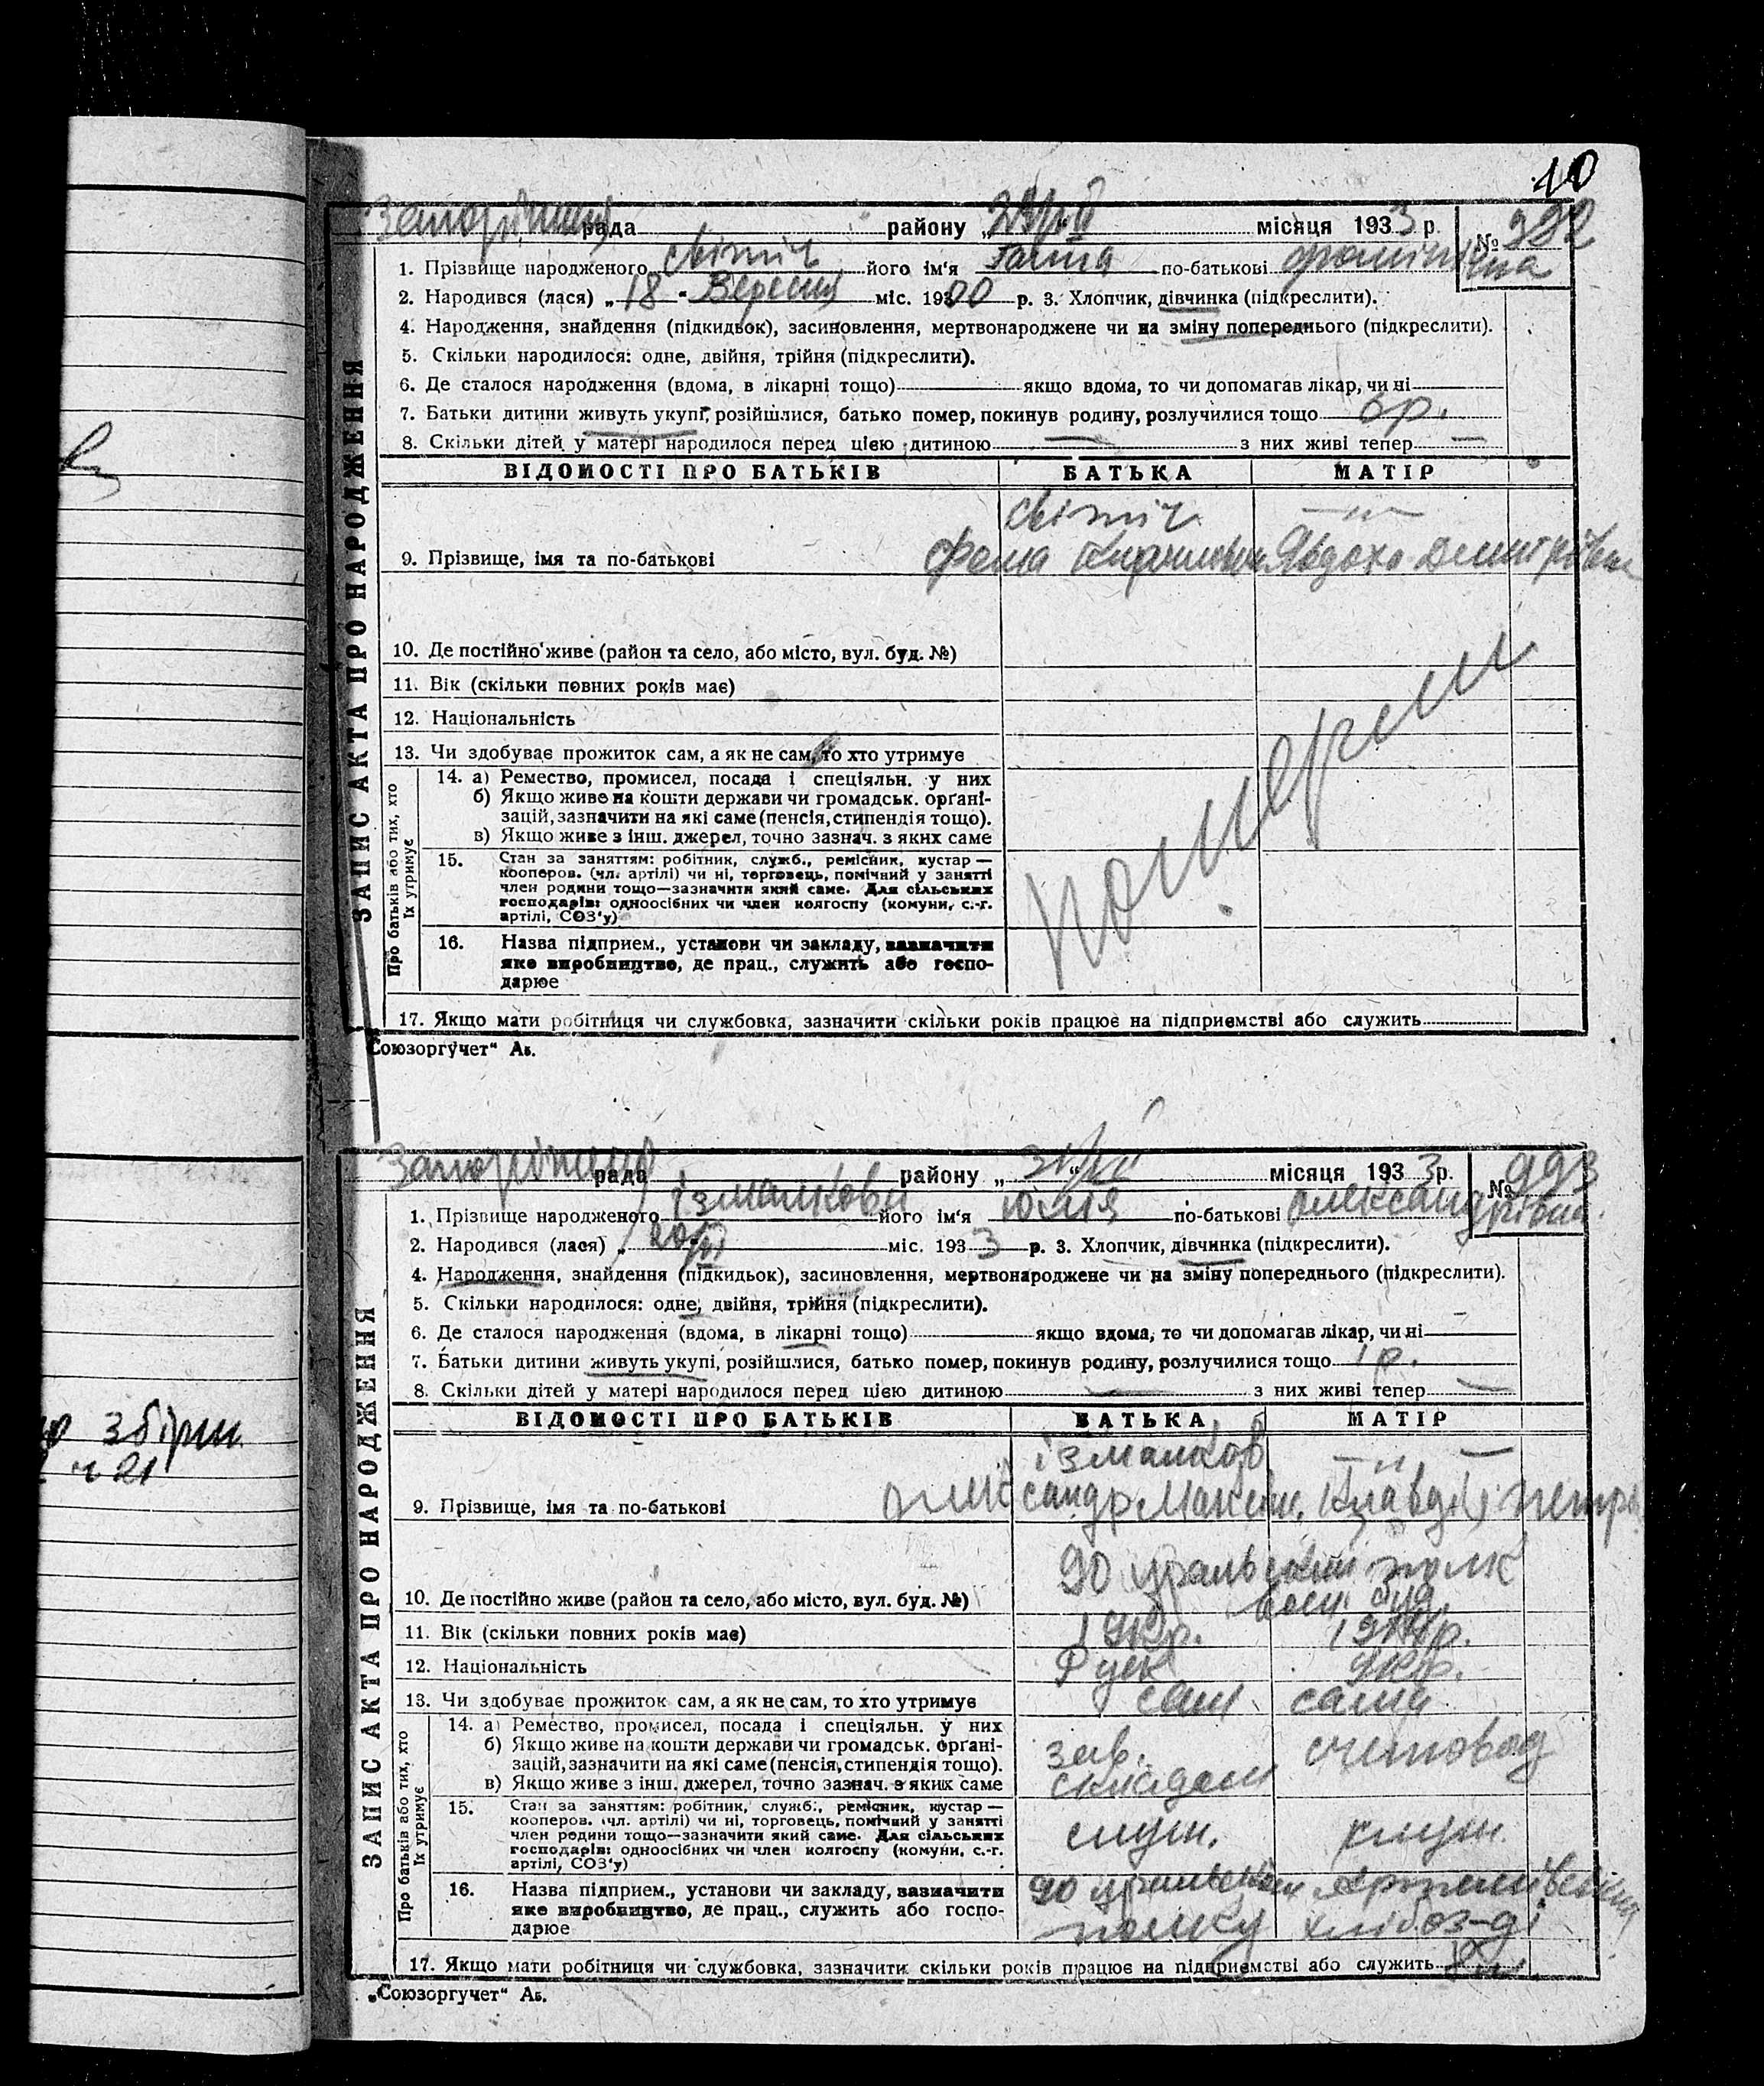 10
рада району „ “ місяця 1933 р. № 992
1. Прізвище народженого Світіч його ім'я Ганна по-батькові
2. Народився (лася) „18“ Вересня міс. 19300 р. 3. Хлопчик, дівчинка (підкреслити).
4. Народження, знайдення (підкидьок), засиновлення, мертвонароджене чи на зміну попереднього (підкреслити).
5. Скільки народилося: одне, двійня, трійня (підкреслити).
6. Де сталося народження (вдома, в лікарні тощо) якщо вдома, то чи допомагав лікар, чи ні
7. Батьки дитини живуть укупі, розійшлися, батько помер, покинув родину, розлучилися тощо 6 р.
8. Скільки дітей у матері народилося перед цією дитиною — з них живі тепер —
ЗАПИС АКТА ПРО НАРОДЖЕННЯ
ВІДОМОСТІ ПРО БАТЬКІВ БАТЬКА МАТІР
Світіч —„—
9. Прізвище, імя та по-батькові Фома Кирилович Явдоха Дмитрівна
10. Де постійно живе (район та село, або місто, вул. буд. №)
11. Вік (скільки повних років має)
12. Національність
13. Чи здобуває прожиток сам, а як не сам, то хто утримує
померли
Про батьків або тих, хто їх утримує
14. а) Ремество, промисел, посада і спеціяльн. у них
б) Якщо живе на кошти держави чи громадськ. орґані-
зацій, зазначити на які саме (пенсія, стипендія тощо).
в) Якщо живе з інш. джерел, точно зазнач. з яких саме
15. Стан за заняттям: робітник, служб., ремісник, кустар —
кооперов. (чл. артілі) чи ні, торговець, помічний у занятті
член родини тощо—зазначити який саме. Для сільських
господарів: одноосібних чи член колгоспу (комуни, с.-г.
артілі, СОЗ'у)
16. Назва підприєм., установи чи закладу, зазначити
яке виробництво, де прац., служить або госпо-
дарює
17. Якщо мати робітниця чи службовка, зазначити скільки років працює на підприємстві або служить
„Союзоргучет“ Аб.
рада району „ “ місяця 1933 р. № 993
1. Прізвище народженого Ізмалкови його ім'я Юлія по-батькові Олександрівна
2. Народився (лася) „20/ “ міс. 1933 р. 3. Хлопчик, дівчинка (підкреслити).
4. Народження, знайдення (підкидьок), засиновлення, мертвонароджене чи на зміну попереднього (підкреслити).
5. Скільки народилося: одне, двійня, трійня (підкреслити).
6. Де сталося народження (вдома, в лікарні тощо) якщо вдома, то чи допомагав лікар, чи ні
7. Батьки дитини живуть укупі, розійшлися, батько помер, покинув родину, розлучилися тощо 1 р.
8. Скільки дітей у матері народилося перед цією дитиною — з них живі тепер —
ЗАПИС АКТА ПРО НАРОДЖЕННЯ
ВІДОМОСТІ ПРО БАТЬКІВ БАТЬКА МАТІР
Ізмалков —„—
9. Прізвище, імя та по-батькові Олександр Максім. Клавдія Петрів
90 уральский полк
10. Де постійно живе (район та село, або місто, вул. буд. №)
11. Вік (скільки повних років має)
12. Національність Руск укр.
13. Чи здобуває прожиток сам, а як не сам, то хто утримує сам сама
Про батьків або тих, хто їх утримує
14. а) Ремество, промисел, посада і спеціяльн. у них
б) Якщо живе на кошти держави чи громадськ. орґані-
зацій, зазначити на які саме (пенсія, стипендія тощо).
в) Якщо живе з інш. джерел, точно зазнач. з яких саме
зав. складом счетовод
15. Стан за заняттям: робітник, служб., ремісник, кустар —
кооперов. (чл. артілі) чи ні, торговець, помічний у занятті
член родини тощо—зазначити який саме. Для сільських
господарів: одноосібних чи член колгоспу (комуни, с.-г.
артілі, СОЗ'у)
служ. служ.
16. Назва підприєм., установи чи закладу, зазначити
яке виробництво, де прац., служить або госпо-
дарює
90 уральском полку хлібоз-ді
17. Якщо мати робітниця чи службовка, зазначити скільки років працює на підприємстві або служить
„Союзоргучет“ Аб.
збірн.
ч 21